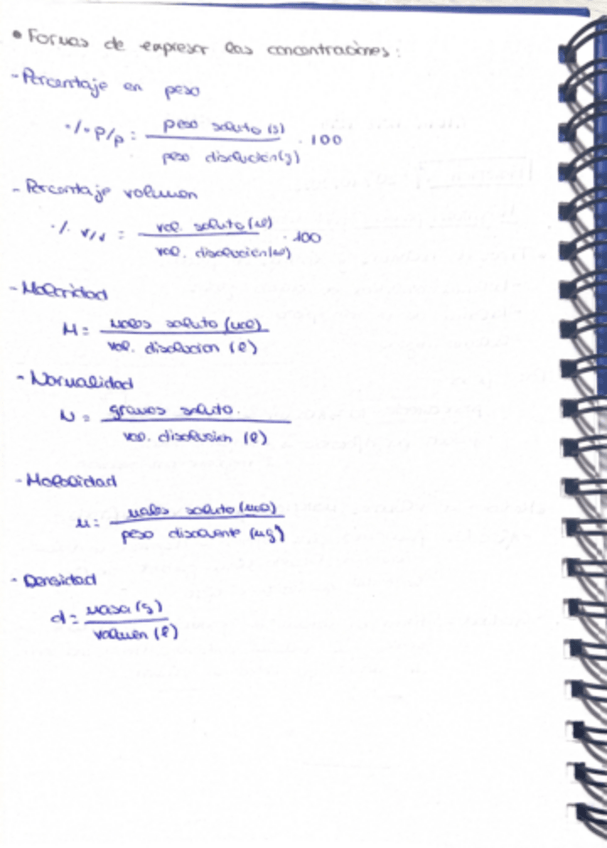 • Formas de expresar las concentraciones:
- Porcentaje en peso
·/· P/P = peso soluto (g) / peso disolución (g) · 100
- Porcentaje volumen
·/· v/v = vol. soluto (ml) / vol. disolución (ml) · 100
- Molaridad
M = moles soluto (mol) / vol. disolucion (l)
- Normalidad
N = gramos soluto / vol. disolucion (l)
- Molalidad
m = moles soluto (mol) / peso disolvente (kg)
- Densidad
d = masa (g) / volumen (l)